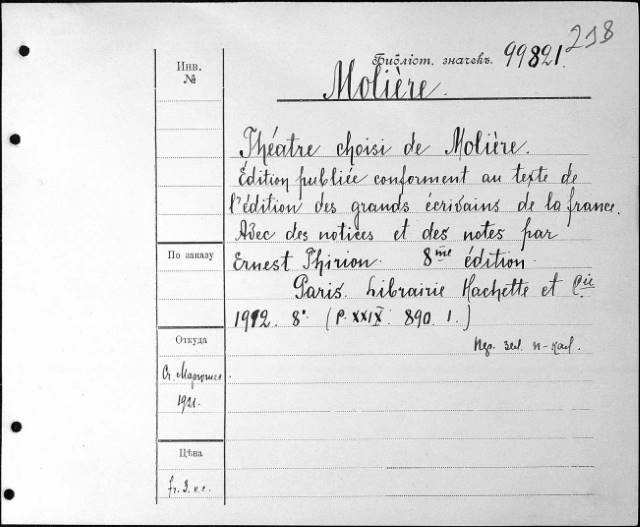 218
Библіот. значекъ. 99821.
Инв.
№
Molière.
Théatre choisi de Molière.
Édition publiée conforment au texte de
l'édition des grands écrivains de la france.
Avec des notices et des notes par
По заказу
Ernest Thirion. 8me édition.
Paris. Librairie Hachette et Cie
1912. 8° (p. XXIX. 890. 1.)
Откуда
1921.
Цѣна
fr. 3.